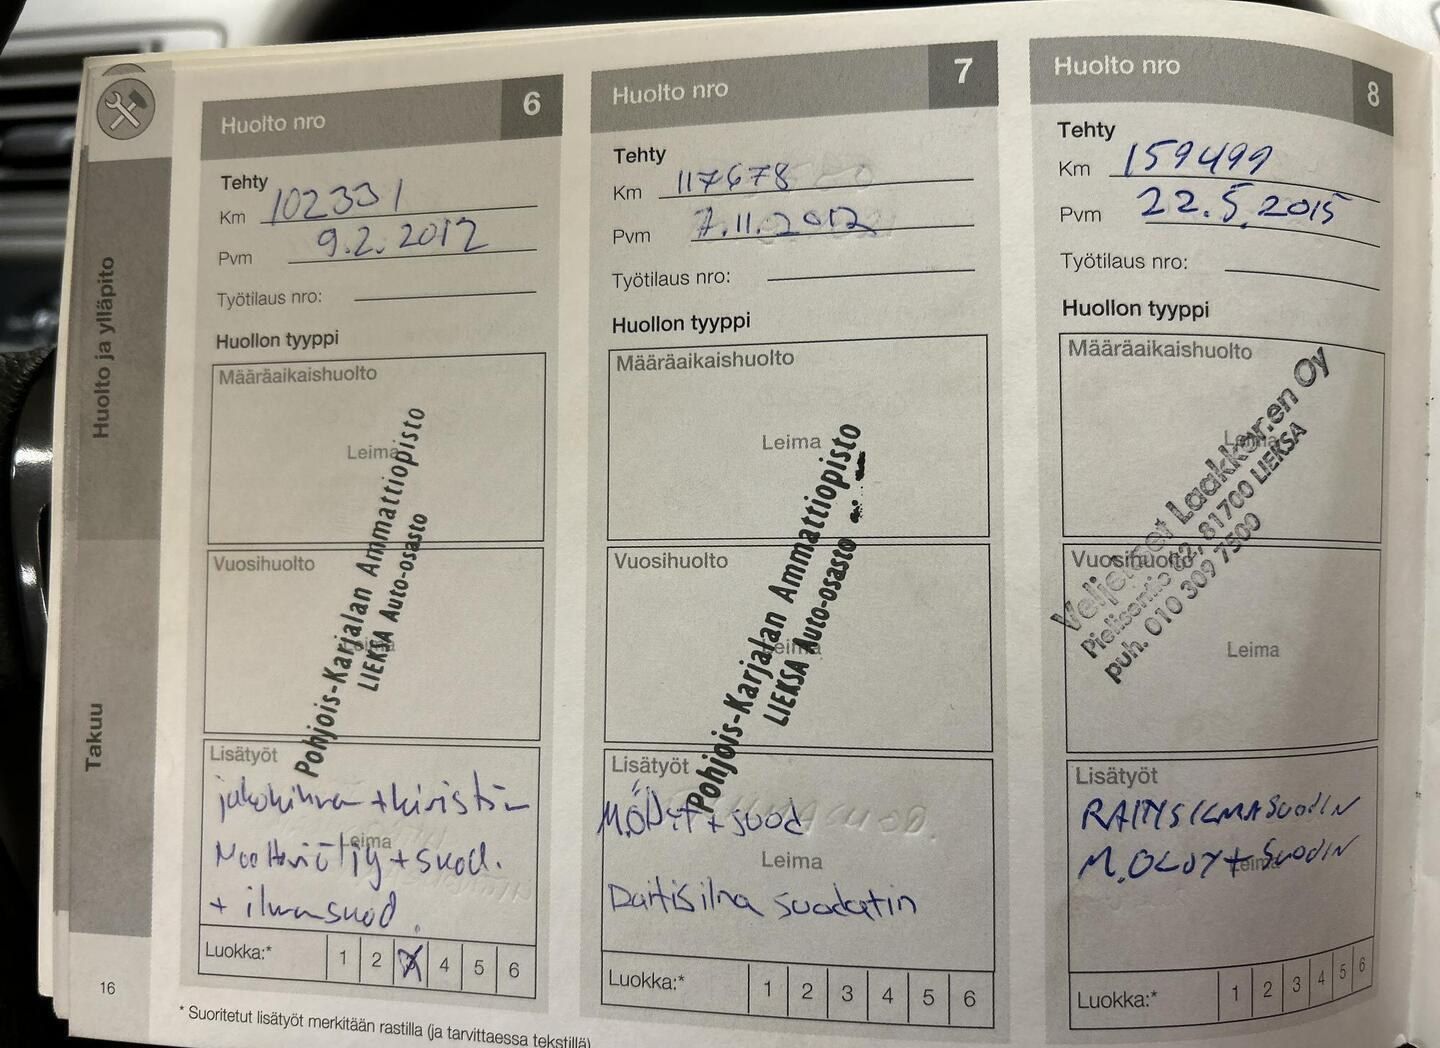 Huolto ja ylläpito
Takuu
16
Huolto nro 6
Tehty
Km 102331
Pvm 9.2.2012
Työtilaus nro:
Huollon tyyppi
Määräaikaishuolto
Leima
Vuosihuolto
Leima
Pohjois-Karjalan Ammattiopisto
LIEKSA Auto-osasto
Lisätyöt
jakohihna + kiristin
Leima
Moottoriöljy + suod.
+ ilmansuod.
Luokka:* 1 2 3 4 5 6
Huolto nro 7
Tehty
Km 117678
Pvm 7.11.2012
Työtilaus nro:
Huollon tyyppi
Määräaikaishuolto
Leima
Vuosihuolto
Leima
Pohjois-Karjalan Ammattiopisto
LIEKSA Auto-osasto
Lisätyöt
+ suod
Leima
Raitisilma suodatin
Luokka:* 1 2 3 4 5 6
Huolto nro 8
Tehty
Km 159499
Pvm 22.5.2015
Työtilaus nro:
Huollon tyyppi
Määräaikaishuolto
Leima
Vuosihuolto
Leima
Veljekset Laakkonen Oy
Pielisentie 82, 81700 LIEKSA
puh. 010 309 7500
Lisätyöt
RAITISILMASUODIN
M.ÖLJY + SUODIN
Leima
Luokka:* 1 2 3 4 5 6
* Suoritetut lisätyöt merkitään rastilla (ja tarvittaessa tekstillä)